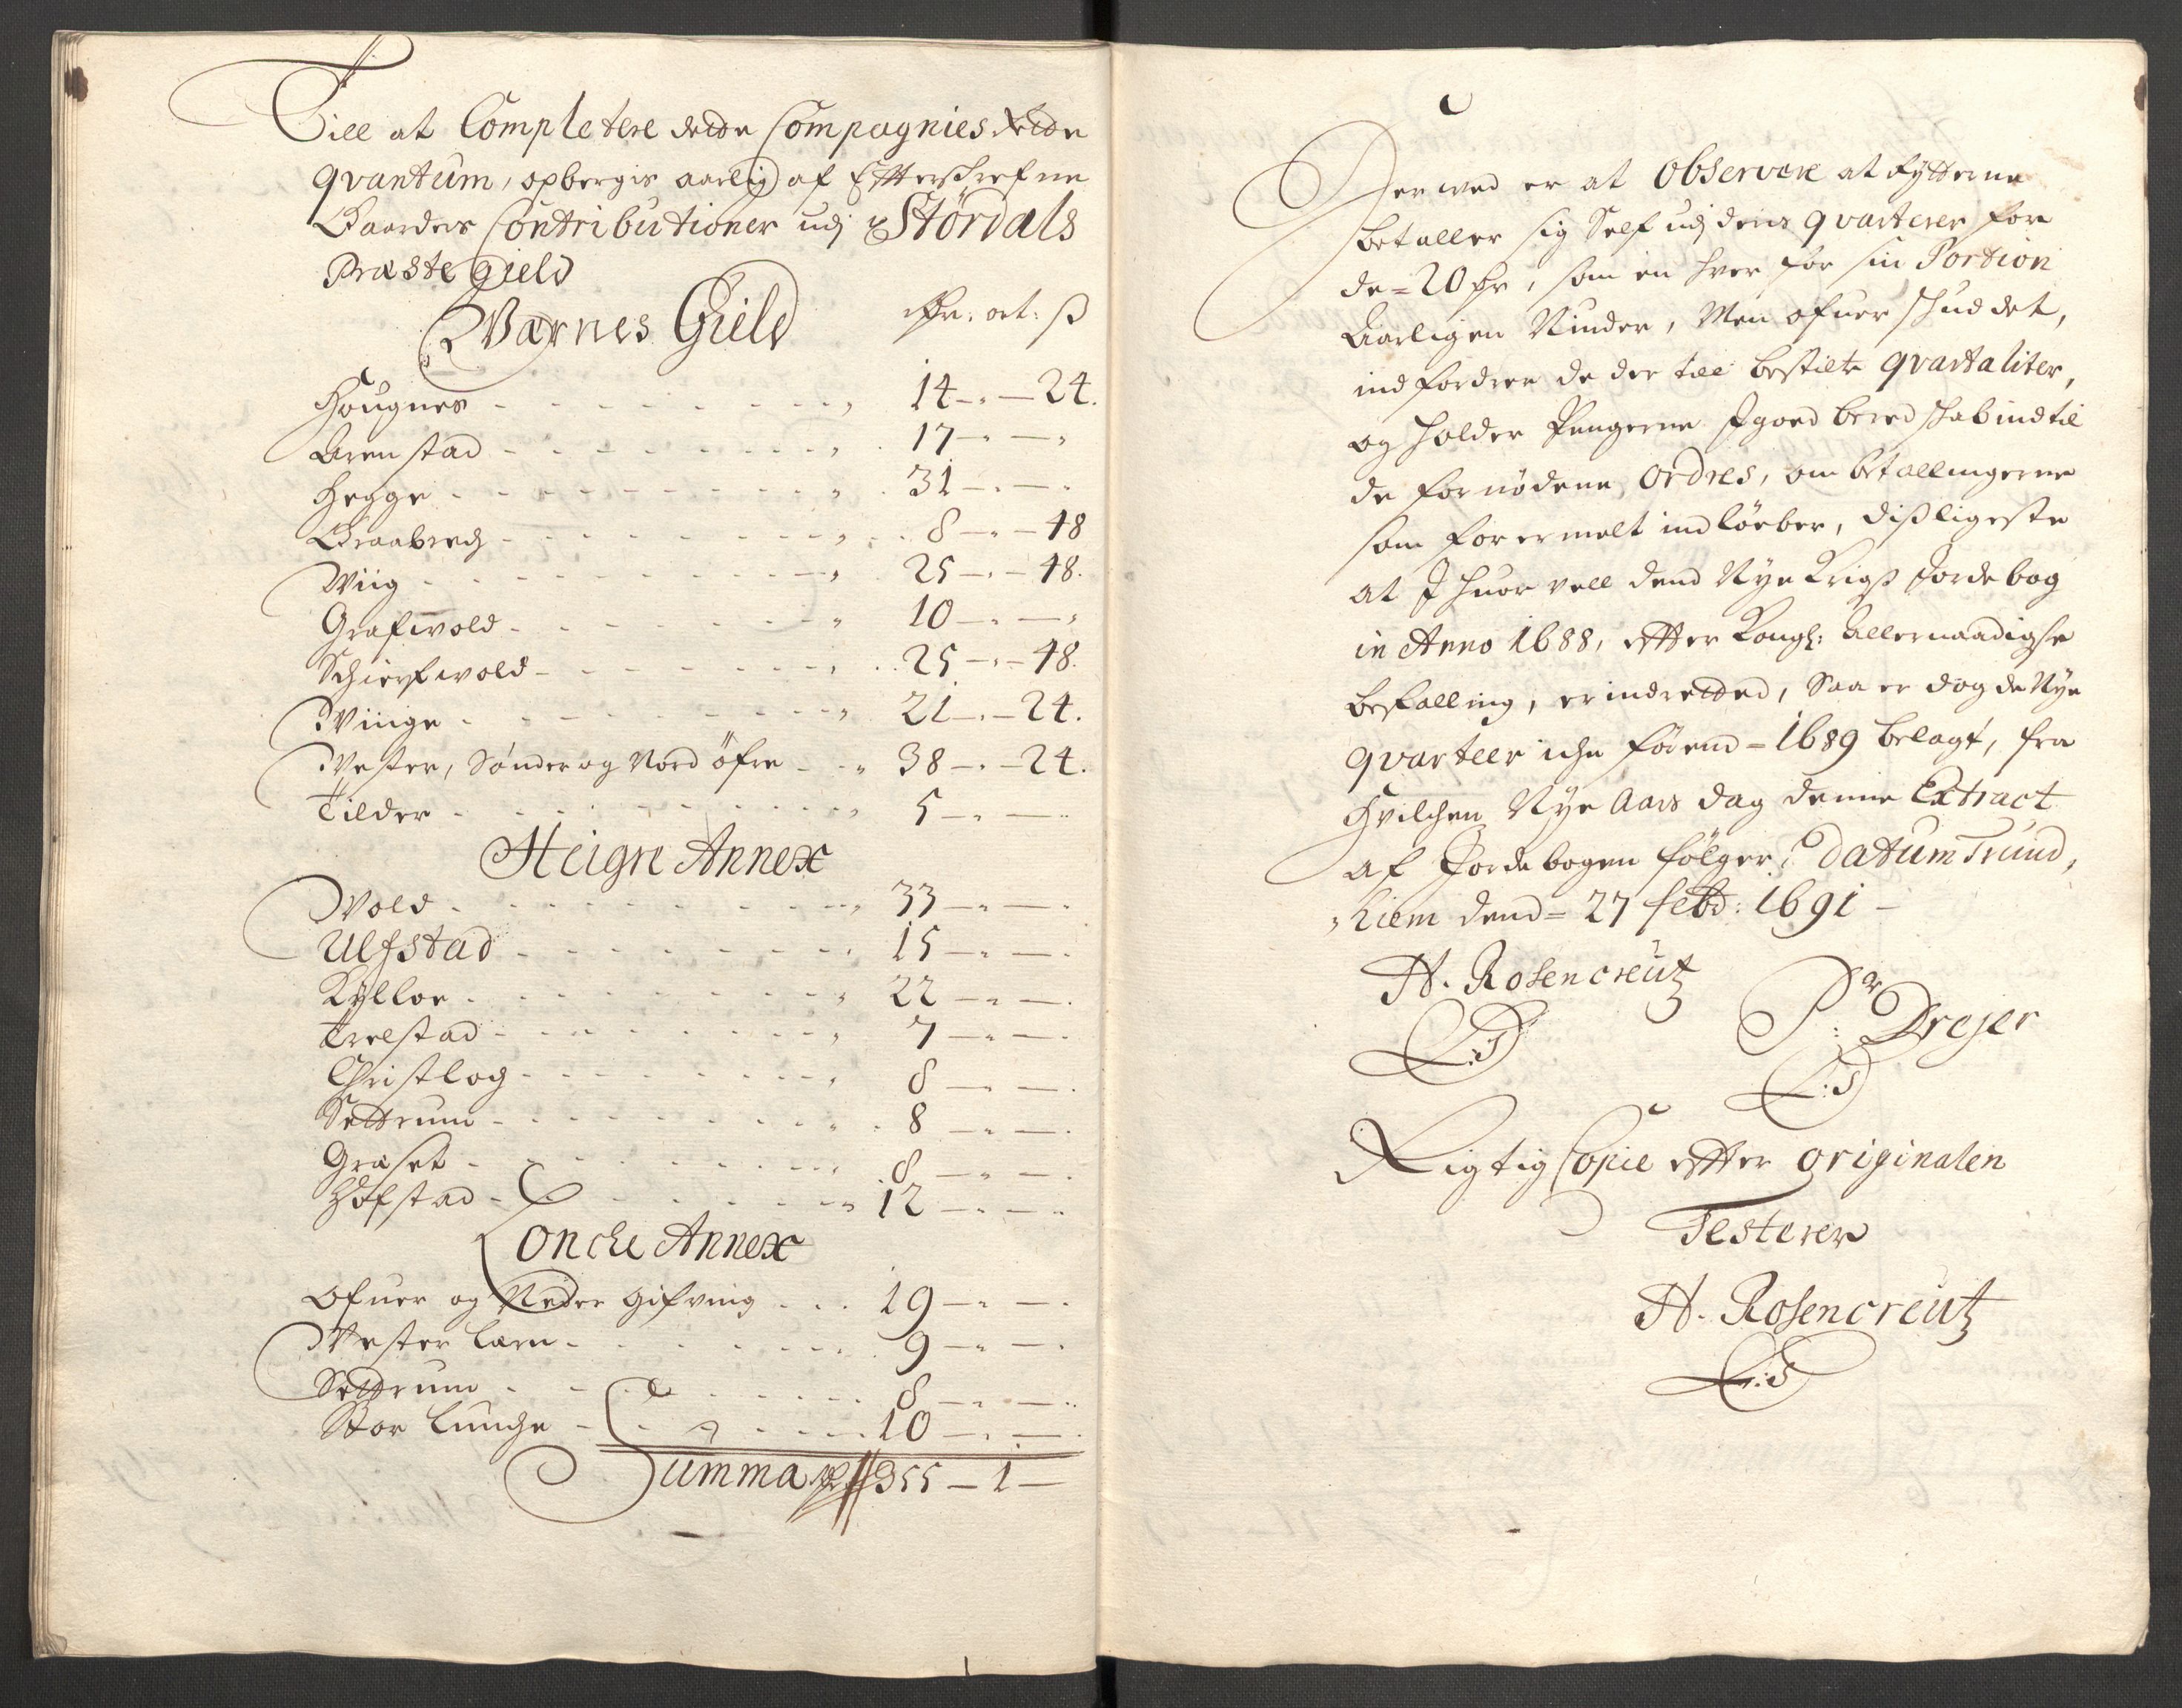 Till at Completere dette Compagnies rette
qvantum, opbergis aarlig af Efftterschrefne
Gaarders Contributioner udj Stördals
Præstegield
Wærnes Gield Rdr: ort: ß
Hougnes - - - 14 - " - 24.
Arenstad - - - 17 - " - "
Hegge - - - 31 - " - "
Graabreck - - - 8 - " - 48
Wiig - - - 25 - " - 48.
Grafwold - - - 10 - " - "
Schierfwold - - - 25 - " - 48.
Winge - - - 21 - " - 24.
Wester, Sønder og Nord öfre - - 38 - " - 24.
Tilder - - - 5 - " - "
Heigre Annex
Wold - - - 33 - " - "
Ulfstad - - - 15 - " - "
Kylloe - - - 22 - " - "
Trelstad - - - 7 - " - "
Christlog - - - 8 - " - "
Settrum - - - 8 - " - "
Græset - - - 8 - " - "
Hofstad - - - 12 - " - "
Loncke Annex
Ofuer og Neder Gifving - - - 19 - " - "
Wester Lærn - - - 9 - " - "
Settrum - - - 8 - " - "
Stor Lunche - - - 10 - " - "
Summa Rdr 355 - 1 -
Derwed er at Observere at Rytterne
betaller sig Self udj deris qvarterer for
de = 20 Rdr, som en hver for sin Portion
Aarligen Nider, Men ofuer skuddet,
indfordrer de der till bestilte qvartaliter,
og holder Pengerne I goed beredskab indtil
de fornødene Ordres, om betallingerne
som forermelt indlöeber, dißligeste
at I huor vell dend Nye Krigs Jordebog
in Anno 1688, effter Kongl: Allernaadigste
befalling, er indretted, Saa er dog de Nye
qvarteer iche förend = 1689 belagt, fra
Hvilchen Nye Aars dag denne Extract
af Jordebogen fölger. Datum Trund,
hiem dend = 27 febr: 1691 -
H. Rosencreütz
L:S
Pr: Drejer
L:S
Rigtig Copie effter originalen
Testerer
H. Rosencreütz
L:S